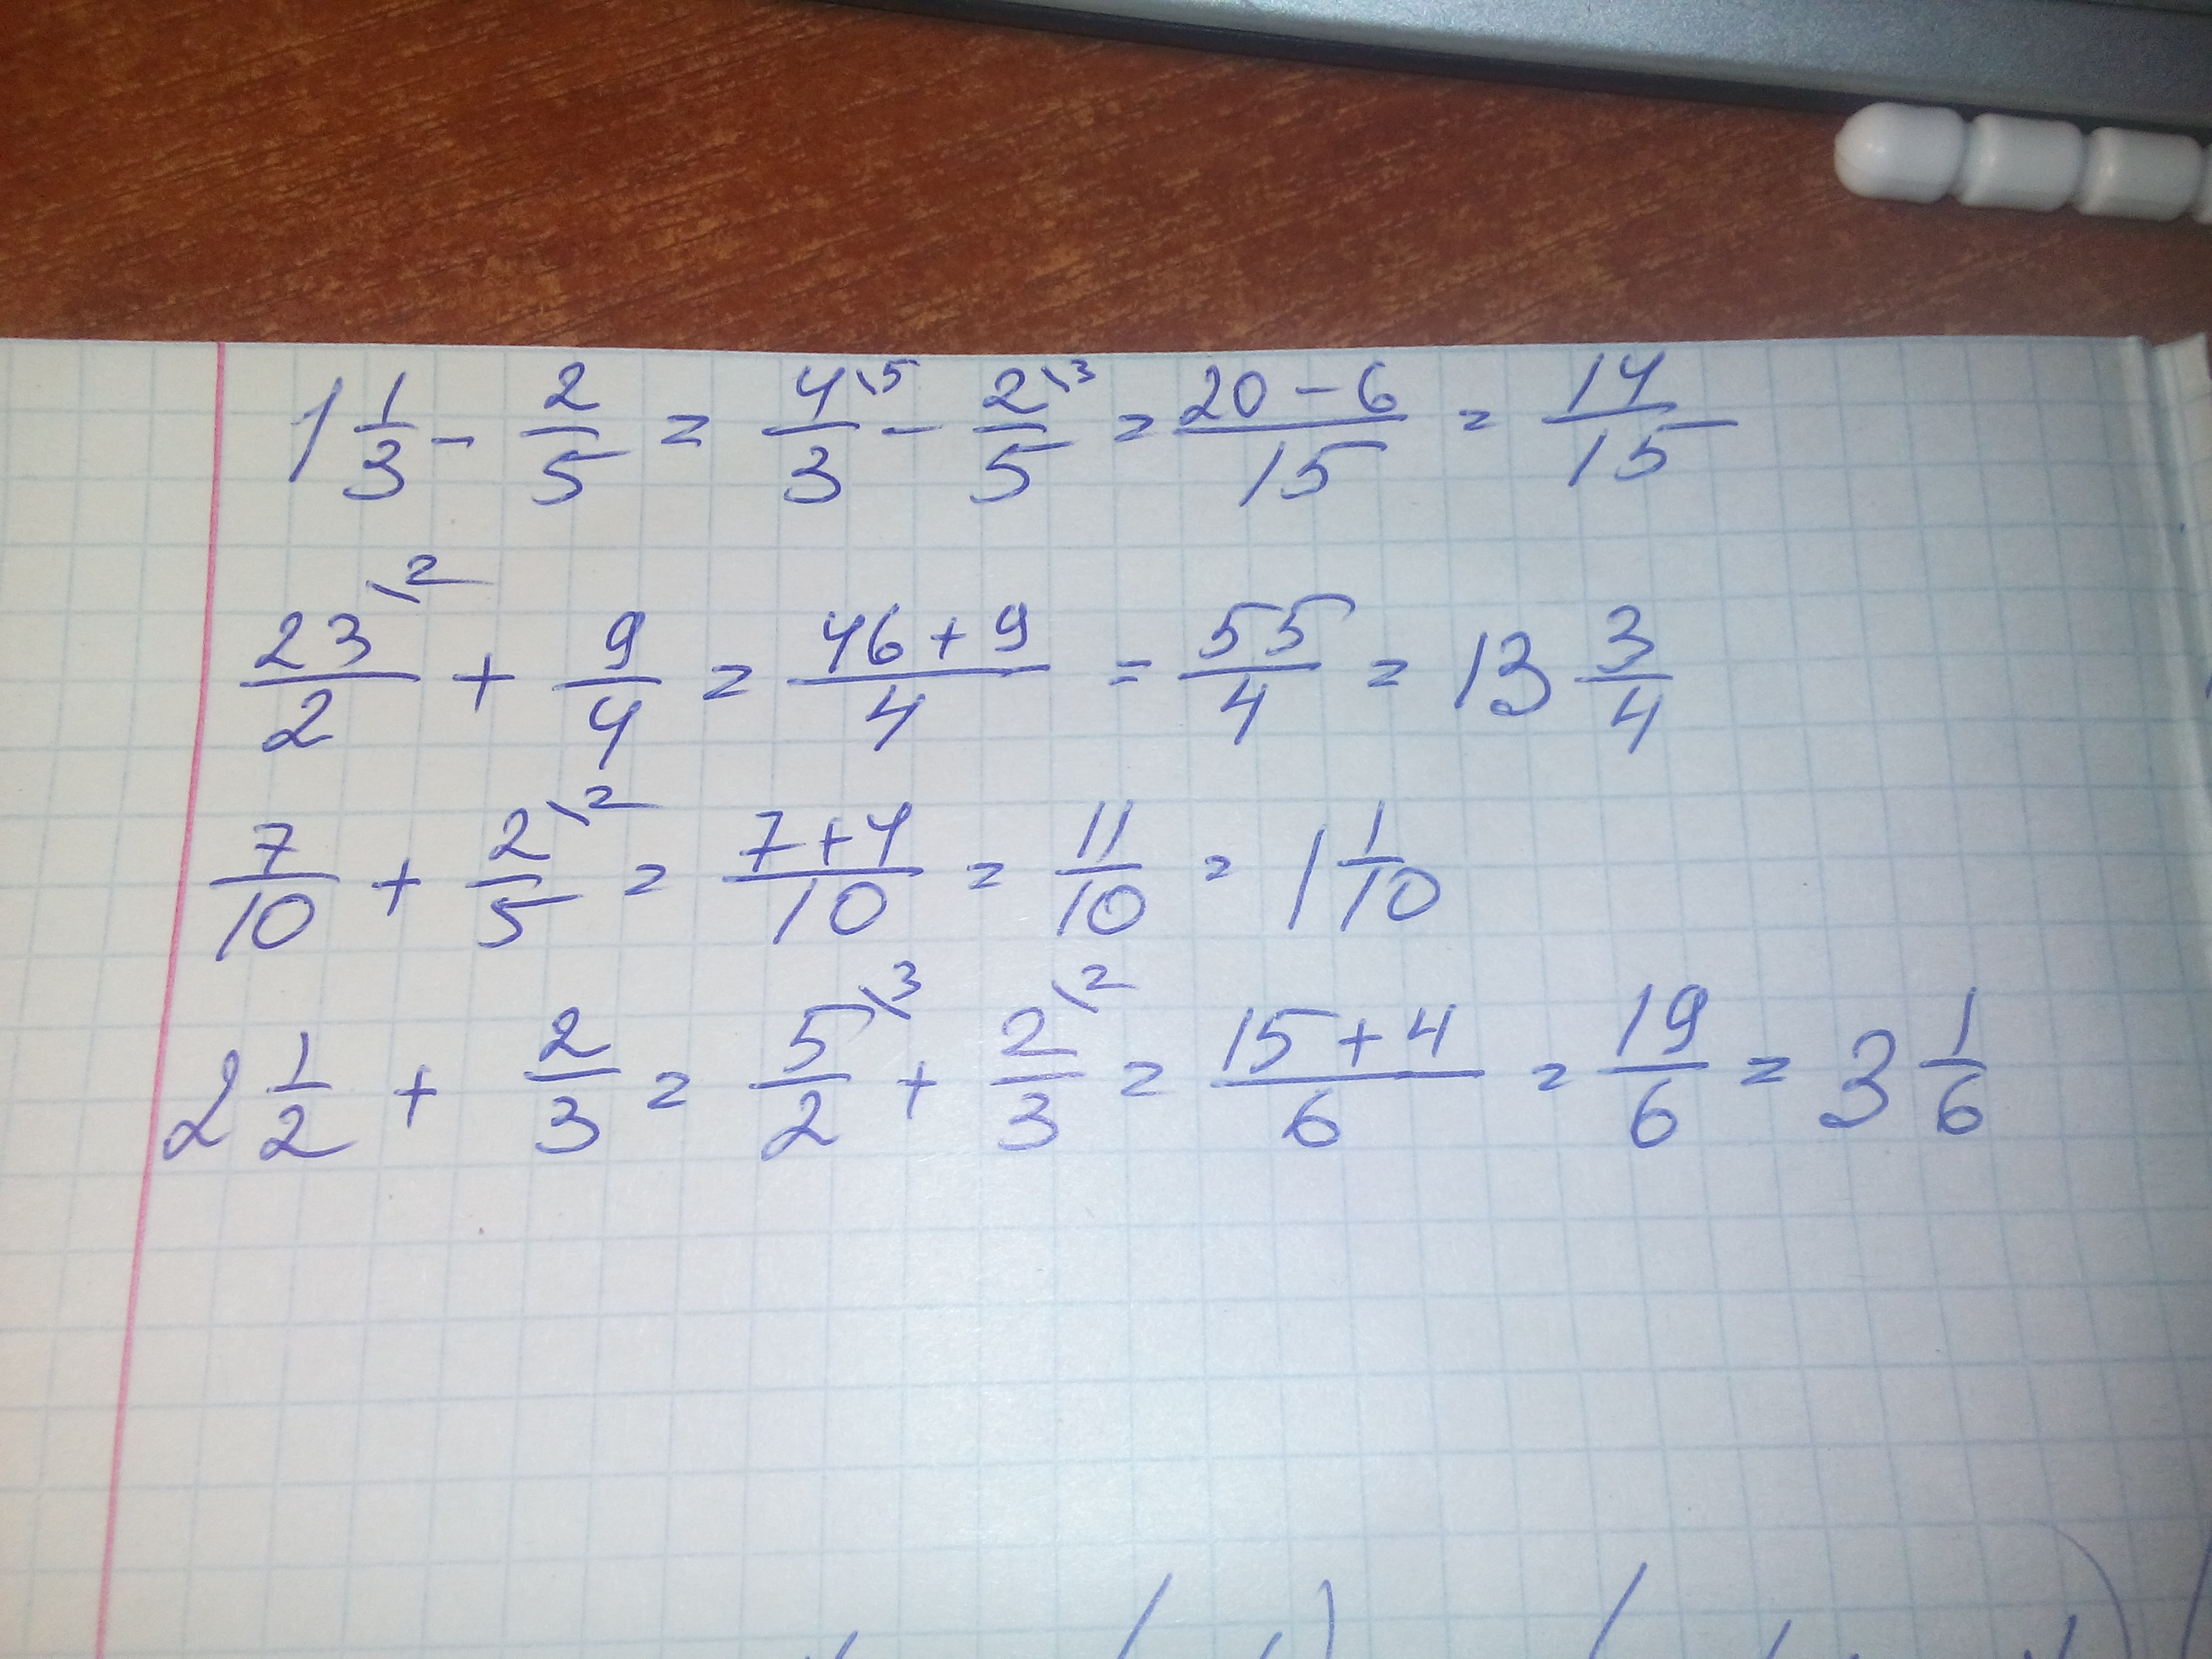 1 1/3 - 2/5 = 4\5/3 - 2\3/5 = 20-6/15 = 14/15
23\2/2 + 9/4 = 46+9/4 = 55/4 = 13 3/4
7/10 + 2\2/5 = 7+4/10 = 11/10 = 1 1/10
2 1/2 + 2/3 = 5\3/2 + 2\2/3 = 15+4/6 = 19/6 = 3 1/6